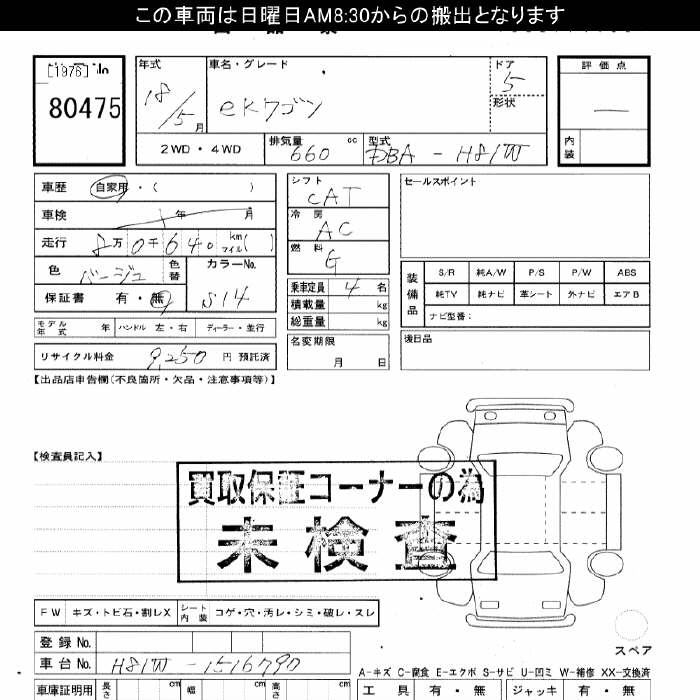 この車両は日曜日AM8:30からの搬出となります
[1976] No
80475
年式
18/5月
車名・グレード
eKワゴン
ドア
5
形状
評価点
内装
2WD・4WD
排気量
660 cc
型式
DBA-H81W
車歴 自家用・( )
車検 年 月
走行 8万0千640 km マイル( )
色 ベージュ
色替
カラーNo.
S14
保証書 有・無
モデル年式 年 ハンドル 左・右 ディーラー・並行
リサイクル料金 9,250 円 預託済
シフト
CAT
冷房
AC
燃料
G
乗車定員 4 名
積載量 kg
総重量 kg
名変期限
月 日
セールスポイント
装備品
S/R 純A/W P/S P/W ABS
純TV 純ナビ 革シート 外ナビ エアB
ナビ型番:
後日品
【出品店申告欄(不良箇所・欠品・注意事項等)】
【検査員記入】
買取保証コーナーの為
未検査
FW キズ・トビ石・割レX シート内装 コゲ・穴・汚レ・シミ・破レ・スレ
登録No.
車台No. H81W-1516790
スペア
A-キズ C-腐食 E-エクボ S-サビ U-凹ミ W-補修 XX-交換済
車庫証明用 長さ cm 幅 cm 高さ cm
工具 有・無 ジャッキ 有・無